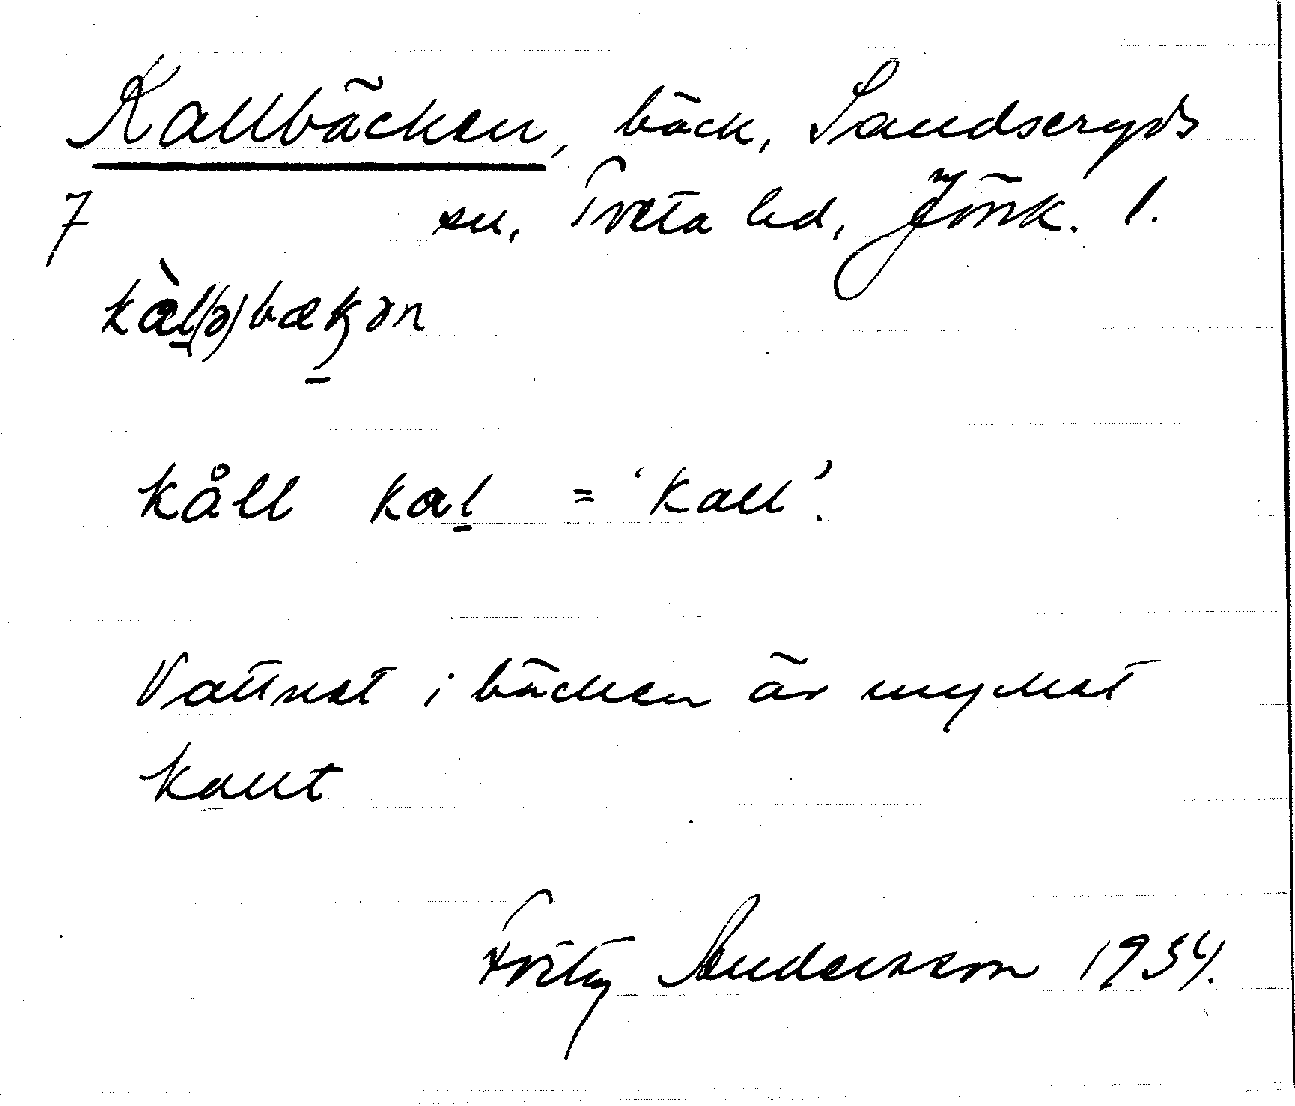 Kallbäcken, bäck, Sandseryds
7 sn, Tveta hd, Jönk. l.
kàl(ə)bækən
kåll kal = 'kall'.
Vattnet i bäcken är mycket
kallt
Fritz Andersson 1934.